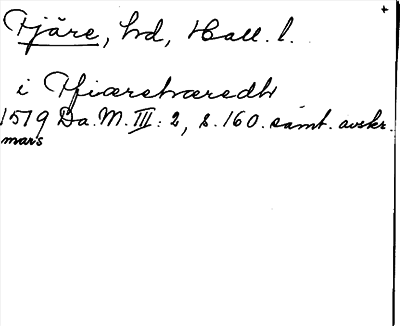 +
Fjäre, hd, Hall. l.
i Ffiærehæredh
1519 Da. M. III: 2, s. 160. samt. avskr.
mars